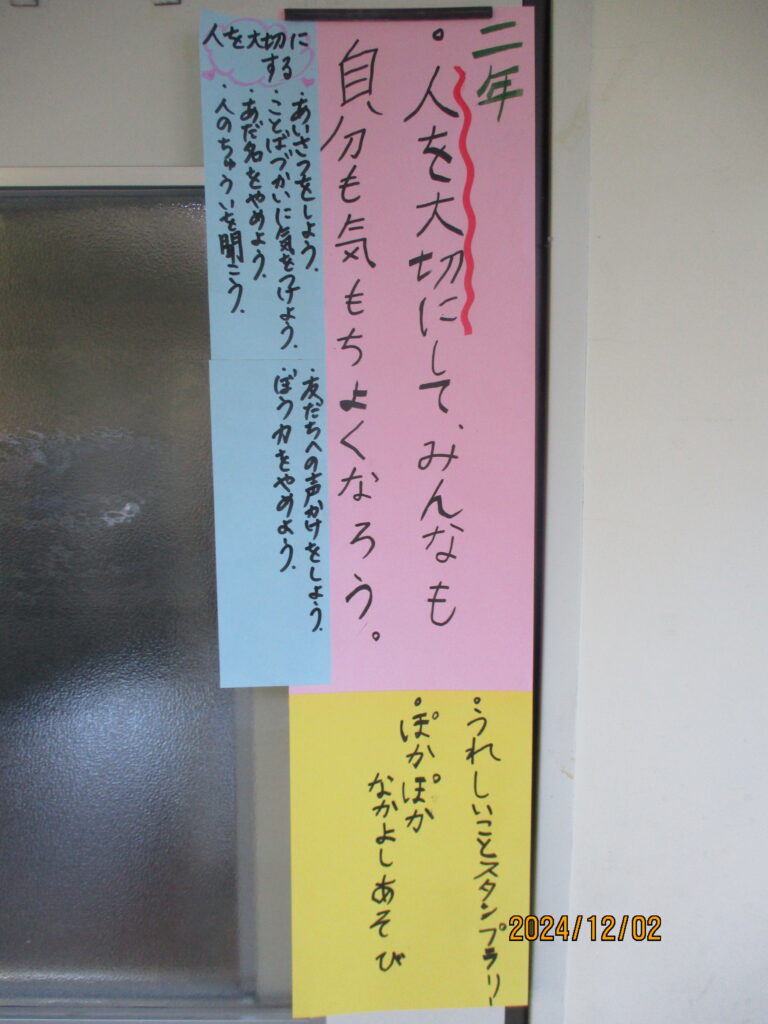 二年
・人を大切にして、みんなも
自分も気もちよくなろう。
人を大切に
する
・あいさつをしよう。
・ことばづかいに気をつけよう。
・あだ名をやめよう。
・人のちゅういを聞こう。
・友だちへの声かけをしよう。
・ぼう力をやめよう。
・うれしいことスタンプラリー
・ぽかぽか
なかよしあそび
2024/12/02